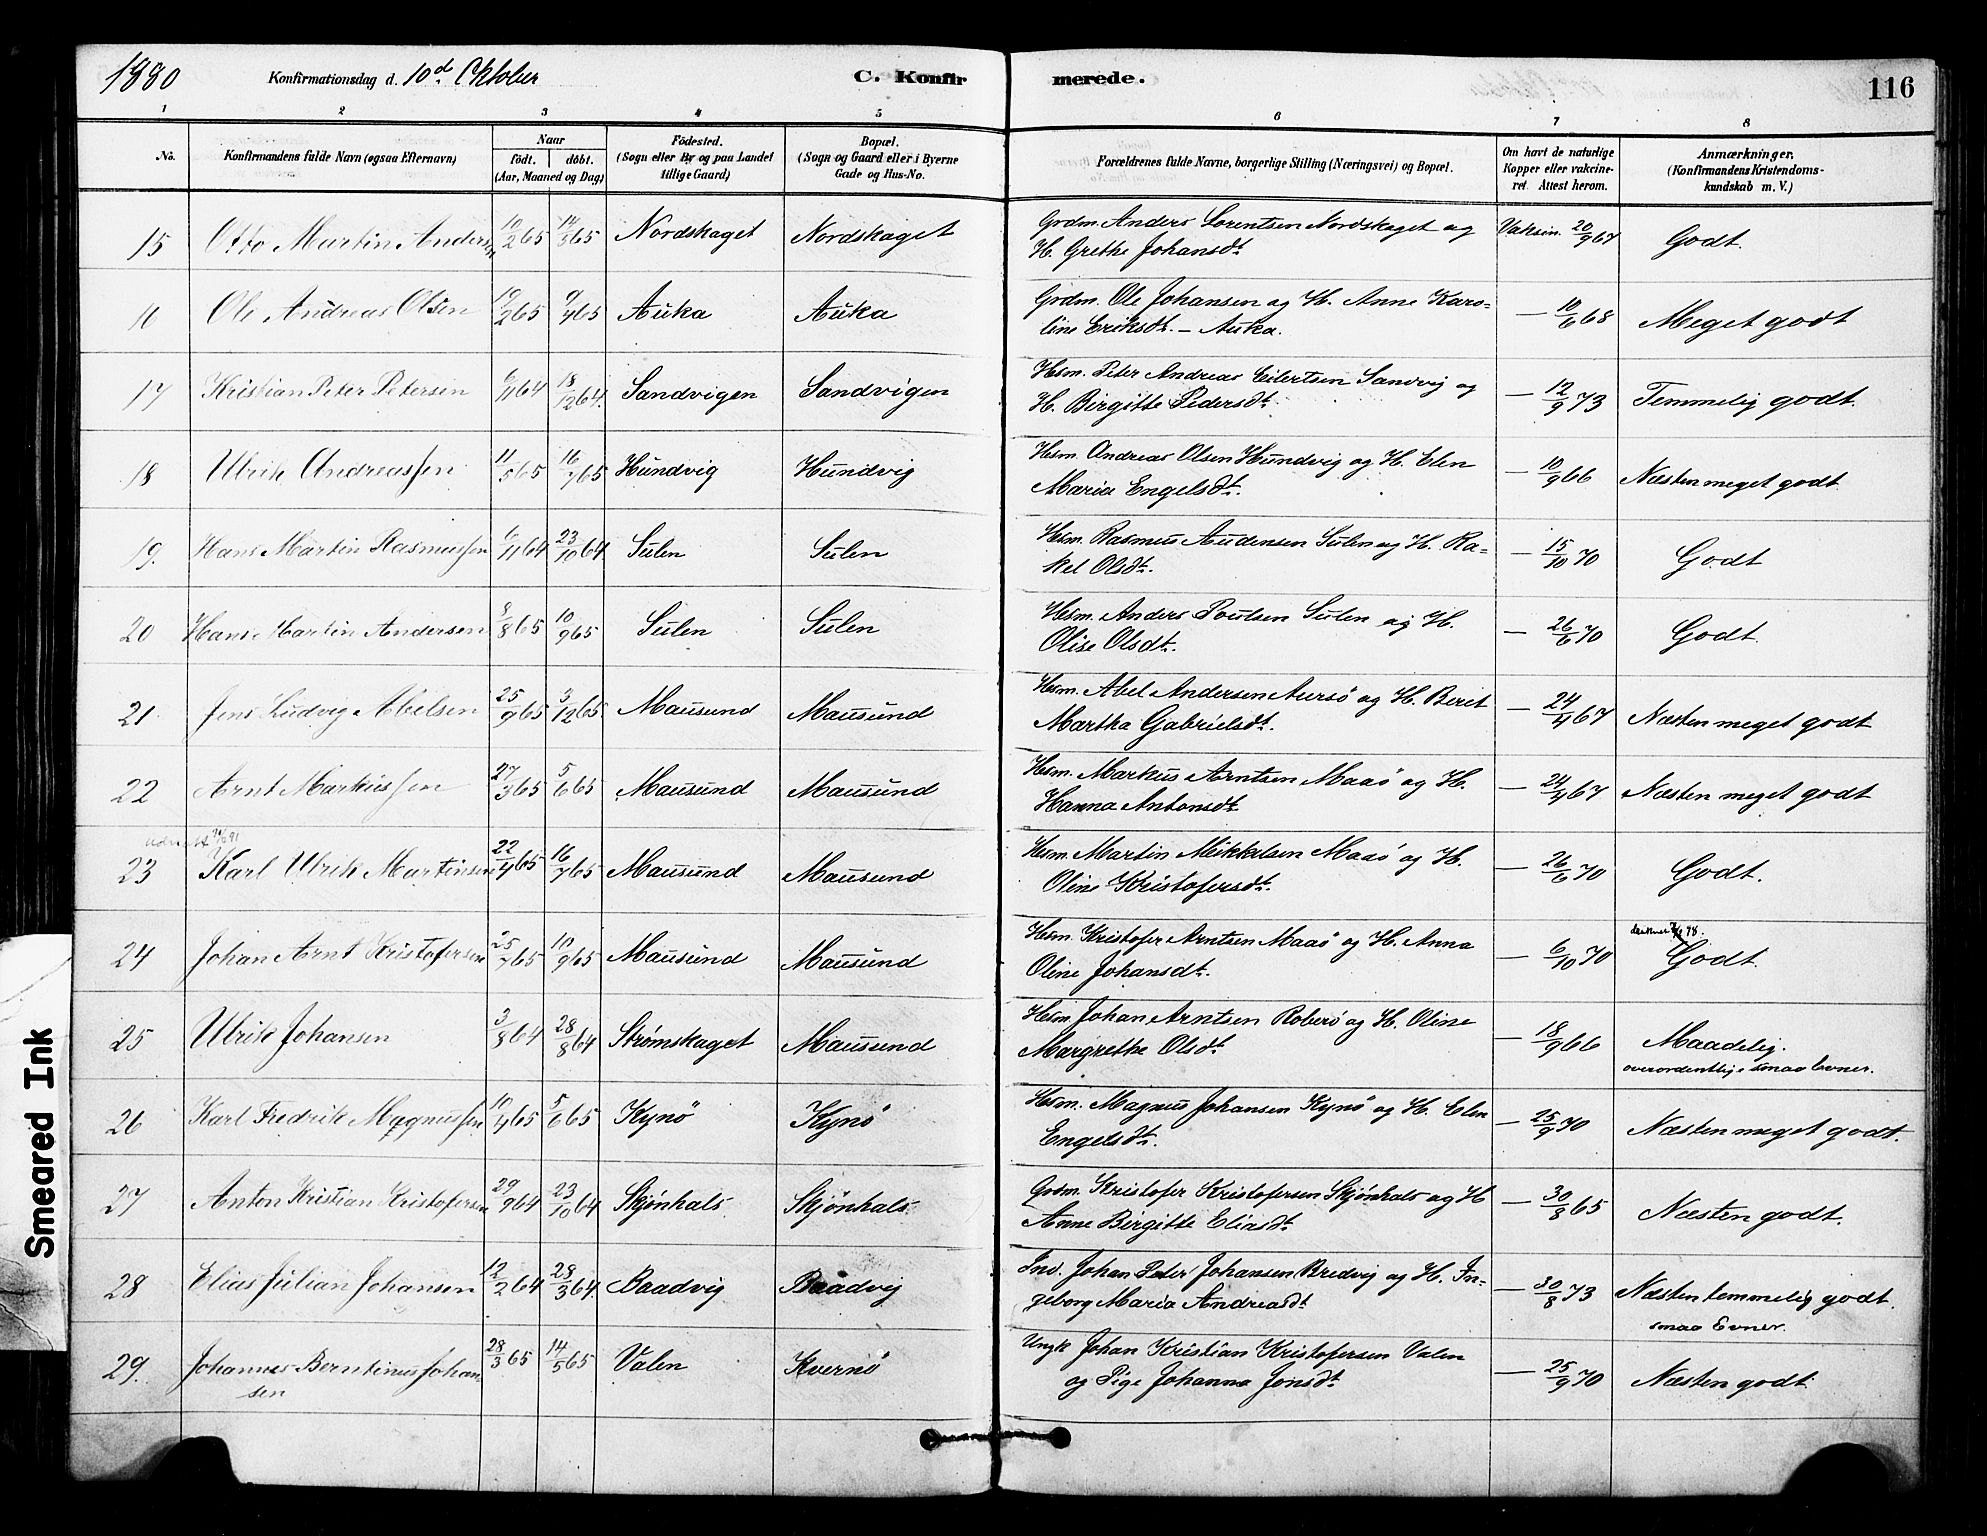 1880 Konfirmationsdag d. 10d Oktober C. Konfir merede. 116
1 2 3 4 5 6 7 8
No. Konfirmandens fulde Navn (ogsaa Efternavn) Naar födt. döbt. (Aar, Maaned og Dag) Födested. (Sogn eller By og paa Landet tillige Gaard) Bopæl. (Sogn og Gaard eller i Byerne Gade og Hus-No. Forældrenes fulde Navne, borgerlige Stilling (Næringsvei) og Bopæl. Om havt de naturlige Kopper eller vakcineret. Attest herom. Anmærkninger. (Konfirmandens Kristendomskundskab m. V.)
15 Otto Martin Andersen 10/2 65 14/3 65 Nordskaget Nordskaget Grdm. Anders Lorentsen Nordskaget og
H. Grethe Johansdt. Vaksin. 20/9 67 Godt.
16 Ole Andreas Olsen 10/2 65 9/4 65 Auka Auka Grdm. Ole Johansen og H. Anne Karo=
line Eriksdt. – Auka. — 10/6 68 Meget godt
17 Kristian Peter Petersen 6/11 64 18/12 64. Sandvigen Sandvigen Hsm. Peter Andreas Eilertsen Sandvig og
H. Birgitte Pedersdt. — 12/9 73 Temmelig godt.
18 Ulrik Andreassen 11/5 65 16/7 65 Hundvig Hundvig Hsm. Andreas Olsen Hundvig og H. Elen
Maria Engelsdt. — 10/9 66 Næsten meget godt
19. Hans Martin Rasmussen 6/11 64 23/10 64 Sulen Sulen Hsm. Rasmus Audensen Sulen og H. Ra-
kel Olsdt. — 15/10 70 Godt
20 Hans Martin Andersen 8/8 65 10/9 65 Sulen Sulen Hsm. Anders Poulsen Sulen og H.
Olise Olsdt. — 26/6 70 Godt.
21. Jens Ludvig Abelsen 25/9 65 3/12 65 Mausund Mausund Hsm. Abel Andersen Aursö og H. Berit
Martha Gabrielsdt. — 24/4 67 Næsten meget godt
22 Arnt Markussen 27/3 65 5/6 65 Mausund Mausund Hsm. Markus Arntsen Maasö og H.
Hanna Antonsdt. — 24/4 67 Næsten meget godt
23 Karl Ulrik Martinsen 22/4 65 16/7 65 Mausund Mausund Hsm. Martin Mikkelsen Maasö og H.
Oline Kristofersdt. — 26/6 70 Godt.
24 Johan Arnt Kristofersen 25/7 65 10/9 65 Mausund Mausund Hsm. Kristofer Arntsen Maasö og H. Anna
Oline Johansdt. — 6/10 70 Godt.
25 Ulrik Johansen 3/8 64 28/8 64 Strømskaget Mausund Hsm Johan Arntsen Roberö og H. Oline
Margrethe Olsdt — 18/9 66 Maadelig.
overordentlige smaa Evner.
26 Karl Fredrik Magnussen 10/4 65 5/6 65 Kynö Kynö Hsm. Magnus Johansen Kynö og H. Elen
Engelsdt. — 25/9 70 Næsten meget godt.
27 Anton Kristian Kristofersen 29/9 64 23/10 64 Skjönhals Skjönhals Grdm. Kristofer Kristofersen Skjönhals og H
Anne Birgitte Eliasdt. — 30/8 65 Næsten godt.
28 Elias Julian Johansen 12/2 64 28/3 64. Baadvig Baadvig Ind. Johan Peter Johansen Bredvig og H. In-
geborg Maria Andreasdt — 30/8 73 Næsten temmelig godt.
smaa Evner.
29. Johannes Berntinus Johan-
sen 28/3 65 14/5 65 Valen Kvernö Ungk Johan Kristian Kristofersen Valen
og Pige Johanna Jonsdt. — 25/9 70 Næsten godt
Smeared Ink